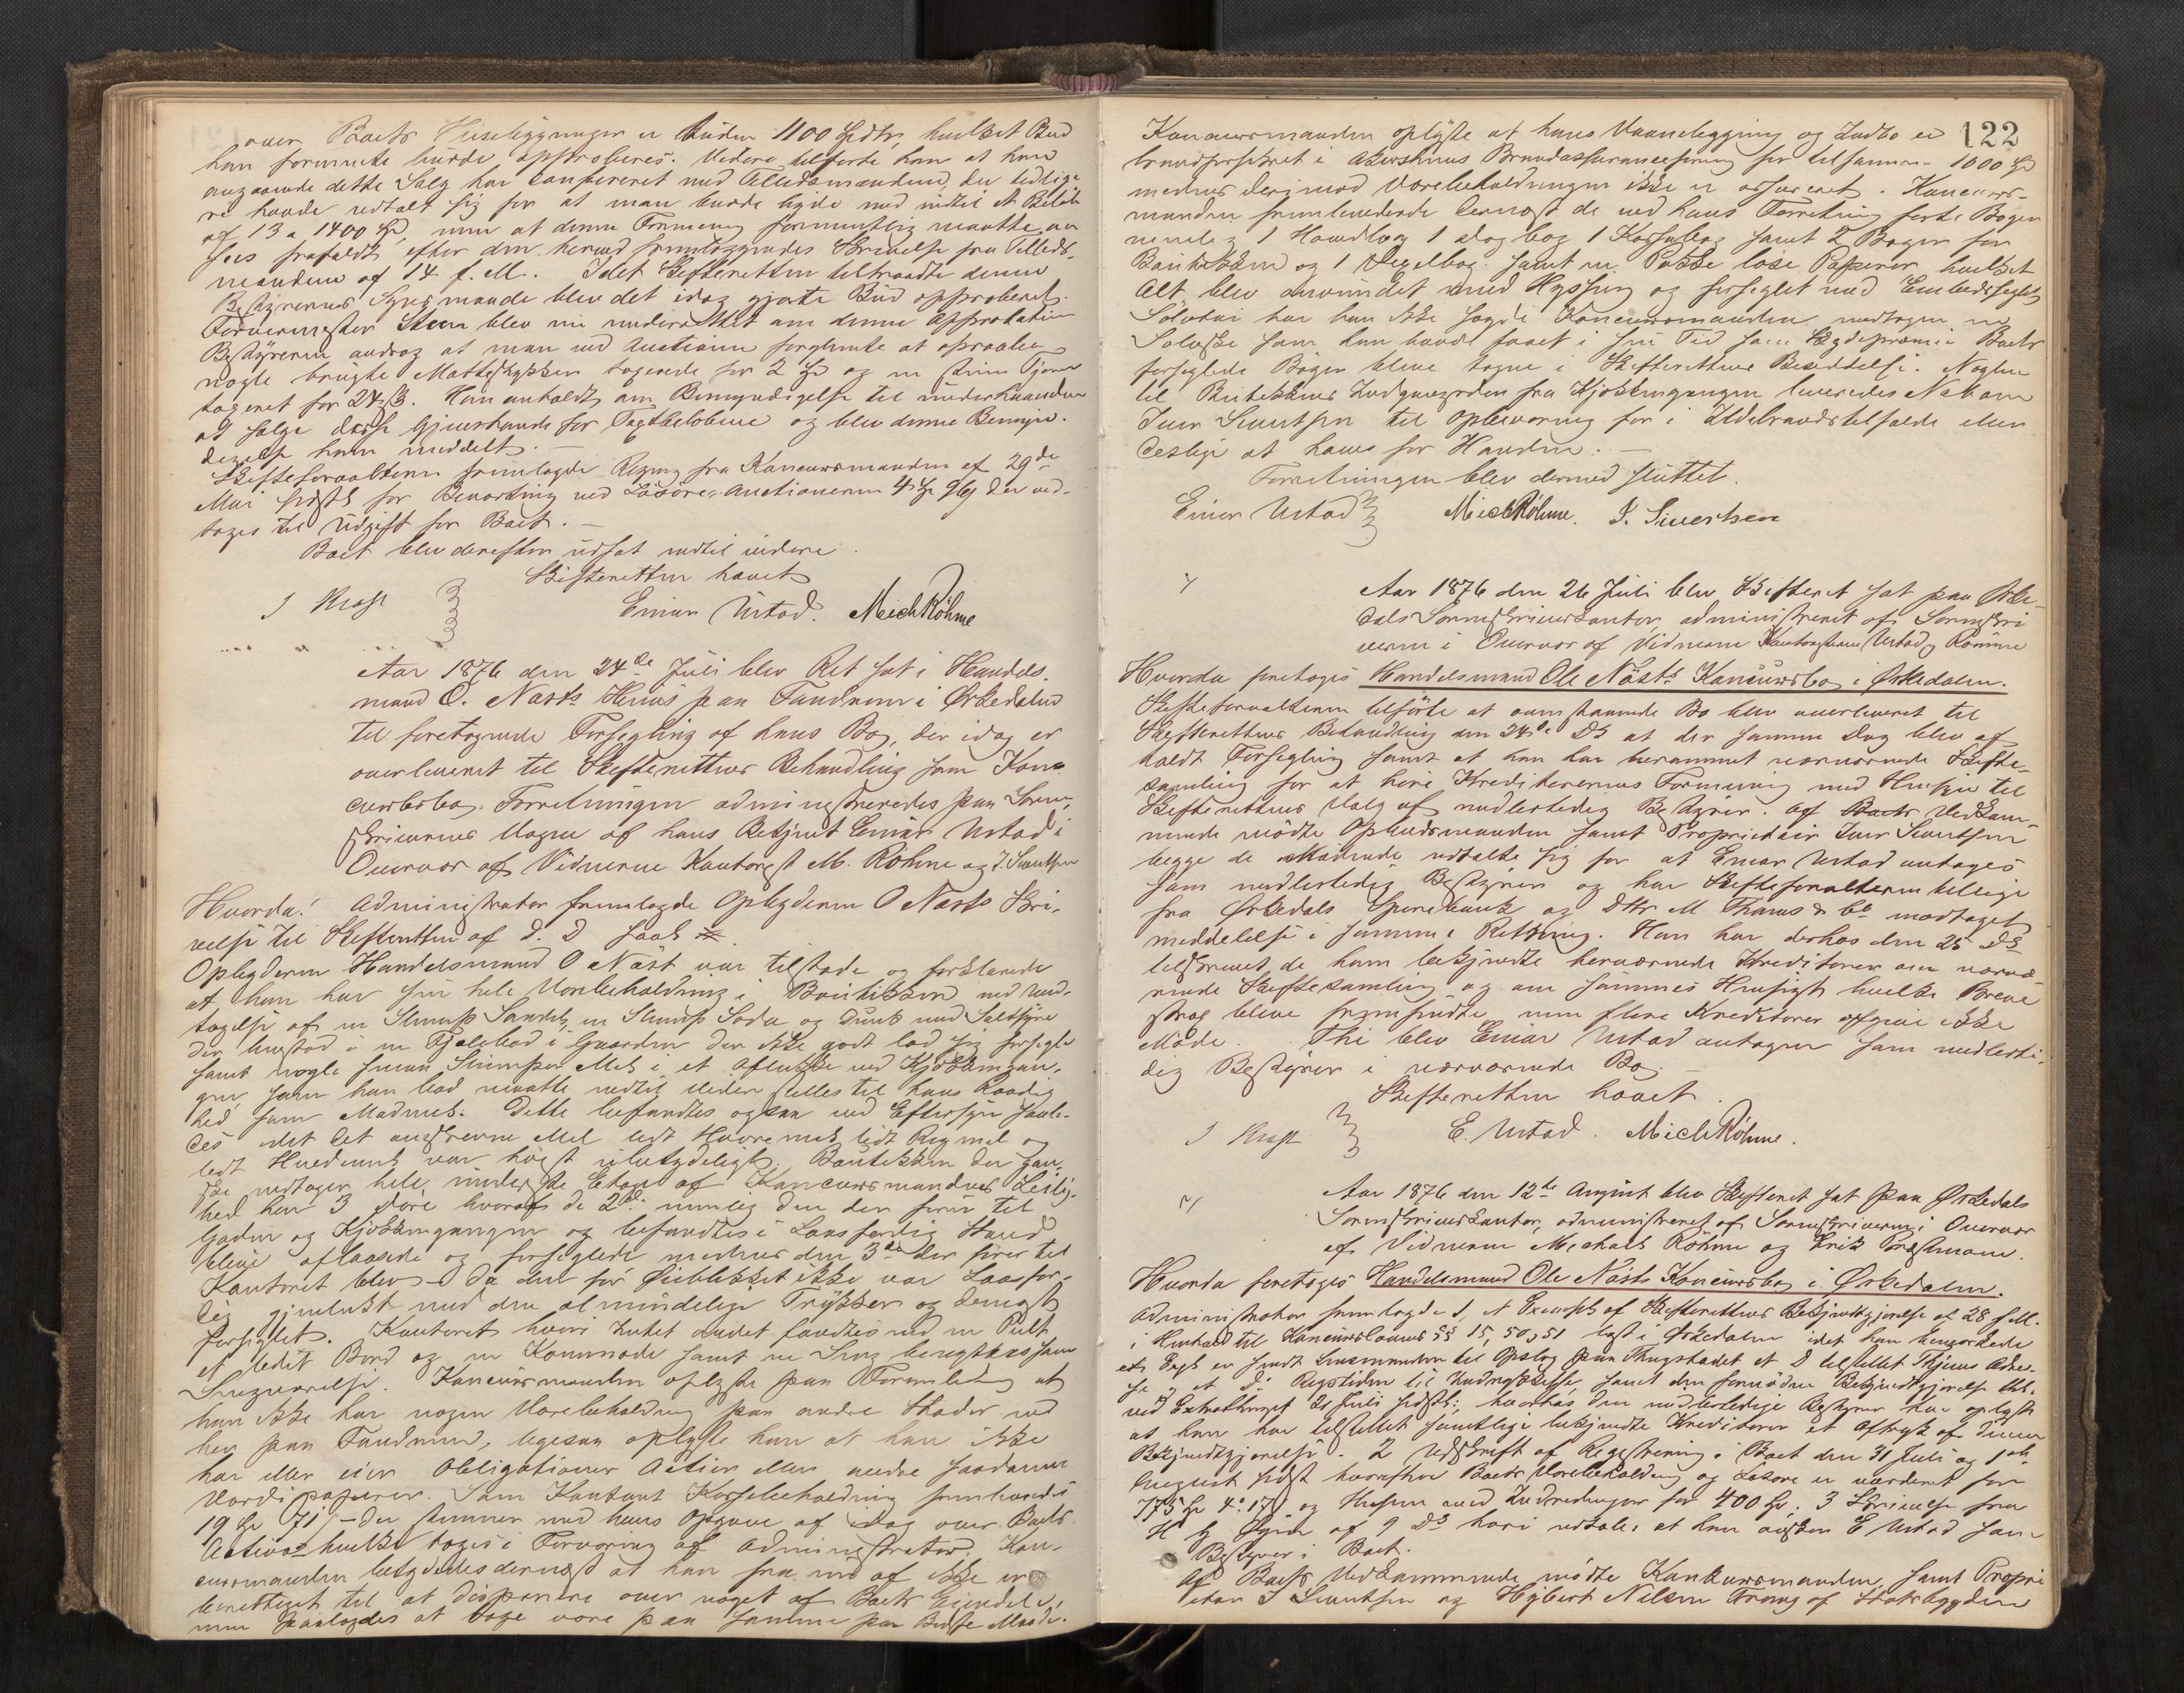 over Boets Huusbygninger er buden 1100 Spdlr, hvilket Bud
han formente burde approberes. Videre tilførte han at han
angaaende dette Salg har confereret med Tillidsmanden, der tidlige
re havde udtalt sig for at man burde byde med indtil et Beløb
af 13 a 1400 Spd, men at denne Formening formentlig maatte an
sees frafaldt efter den herved fremlæggendes Skrivelse fra Tillids-
manden af 14 f. M. Idet Skifteretten tiltraadte denne
Bestyrerens Synsmaade blev det idag gjorte Bud approberet.
Farvermester Steen blev nu underrettet om denne Approbation
Bestyreren androg at man ved Auctionen forglemte at opraabe
nogle brugte taxerede for 2 Spd og en Tjære
taxeret for 24 ß. Han anholdt om Bemyndigelse til underhaanden
at sælge disse Gjenstande for Taxtbeløbene og blev denne Bemyn-
digelse ham meddelt. —
Skifteforvalteren fremlagde Regning fra Concursmanden af 29de
Mai sidstl for Beværtning ved Løsøre-Auctionerne 4 Spd der ved-
toges til Udgift for Boet. —
Boet blev derefter udsat indtil videre.
Skifteretten hævet
J Krag Einar Urstad. Mich Röhme
Aar 1876 den 24de Juli blev Ret sat i Handels-
mand O. Næsts Huus paa Fandrem i Ørkedalen
til foretagende Forsegling af hans Bo, der idag er
overleveret til Skifterettens Behandling som Kon-
cursbo. Forretningen administreredes paa Soren-
skriverens Vegne af hans Betjent Einar Urstad i
Overvær af Vidnerne Kontorist M. Röhme og I. Sivertsen
Hvorda! Administrator fremlagde Opbyderen O Næsts Skri-
velse til Skifteretten af d. D
Opbyderen Handelsmand O Næst var tilstede og forklarede
at han har sin hele Varebeholdning i Boutikken med Und-
tagelse af en Slump en Slump Soda og Dunk med
der henstod i en Fjelebod i Gaarden der ikke godt lod sig forsegle
samt nogle smaa Slumper Mel i et Aflukke ved Kjøkkengan-
gen som han bad maatte indtil videre stilles til hans Raadig-
hed som Madvarer. Dette befandtes ogsaa ved Eftersyn saale-
des idet det anskrevne Mel lidt Havremel lidt Rugmel og
lidt Hvedemel var høist ubetydeligt. Boutikken der gan-
ske indtager hele underste Etage af Concursmandens Leilig-
hed har 3 Døre hvoraf de 2de nemlig den der fører til
Gaden og Kjøkkengangen og befandtes i Laasfærdig Stand
bleve aflaasede og forseglede medens den 3die der fører til
Kontoret blev – da den for Øieblikket ikke var Laasfær-
dig gjenlukt med den almindelige Trykker og dernæst
forseglet. Kontoret hvori Intet andet fandtes end en Pult
et lidet Bord og en Kommode samt en Seng benyttes som
Sengeværelse. Koncursmanden oplyste paa Foranledning at
han ikke har nogen Varebeholdning paa andre Steder end
her paa Fandrem, ligesaa oplyste han at han ikke
har eller eier Obligationer Actier eller andre saadanne
Værdipapirer. Som Contant Kassebeholdning fremlevertes
19 Spd 71 ß – der stemmer med hans Opgave af idag over Boets
Activa – hvilke toges i Forvaring af Administrator. Kon-
cursmanden betydedes dernæst at han fra nu af ikke er
berettiget til at disponere over noget af Boets Eiendele,
men paalagdes at vaage vare paa samme paa Bedste Maade.
122
Koncursmanden oplyste at hans Vaanebygging og Indbo er
brandforsikret i Akershuus Brandassuranceforening for tilsammen 1000 Spd
medens derimod Varebeholdningen ikke er assureret. Koncurs-
manden fremleverede dernæst de ved hans Forretning førte Bøger
nemlig 1 Hovedbog 1 Dagbog 1 Kassabog samt 2 Bøger for
Boutikken og 1 Vexelbog samt en Pakke løse Papirer, hvilket
Alt blev omvundet med Hyssing og forseglet med Embedsseglet
Sølvtøi har han ikke sagde Koncursmanden undtagen en
Sølvskee som han havde faaet i sin Tid som Boets
forseglede Bøger bleve tagne i Skifterettens Besiddelse. Nøglen
til Butikkens Indgangsdør fra Kjøkkengangen leveredes Naboen
Iver Sivertsen til Opbevaring for i Ildebrandstilfælde eller
deslige at haves for Haanden. —
Forretningen blev dermed sluttet.
Einar Urstad Mich Röhme. I. Sivertsen
Aar 1876 den 26 Juli blev Skifteret sat paa Ørke-
dals Sorenskriverkontor, administreret af Sorenskri
veren i Overvær af Vidnerne Kontoristerne Urstad og Römme
Hvorda foretoges Handelsmand Ole Næsts Koncursbo i Ørkedalen.
Skifteforvalteren tilførte at ovenstaaende Bo blev overleveret til
Skifterettens Behandling den 24de Ds at der samme Dag blev af-
holdt Forsegling samt at han har berammet nærværende Skifte-
samling for at høre Kreditorernes Formening med Hensyn til
Skifterettens Valg af midlertidig Bestyrer. Af Boets Vedkom-
mende mødte Opbudsmanden samt Proprietair Iver Sivertsen
begge de Mødende udtalte sig for at Einar Urstad antages
som midlertidig Bestyrer og har Skifteforvalteren tillige
fra Ørkedals Sparebank og Dhrr M Thams & Co modtaget
meddelelse i samme Retning. Han har derhos den 25 Ds
tilskrevet de ham bekjendte herværende Kreditorer om nærvæ-
rende Skiftesamling og om sammes Hensigt hvilke Breve
strax bleve fremsendte men flere Kreditorer afgive ikke
Møde. Thi blev Einar Urstad antagen som midlerti-
dig Bestyrer i nærværende Bo.
Skifteretten hævet.
J Krag E. Urstad. Mich Röhme.
Aar 1876 den 12te August blev Skifteret sat paa Ørkedals
Sorenskriverkontor, administreret af Sorenskriveren i Overvær
af Vidnerne Michael Röhme og Erik
Hvorda foretoges Handelsmand Ole Næsts Koncursbo i Ørkedalen.
Administrator fremlagde 1, et Exempl af Skifterettens Bekjendtgjørelse af 28 f. M.
i Henhold til Koncurslovens §§ 15, 50, 51 læst i Ørkedalen idet han bemærkede
at Expl er sendt Lensmanden til Opslag paa Thingstedet et D tilstillet
et Do Rigstidende til Indrykkelse, samt den fornødne Bekjendtgjørelse
ved Extrathinget 31 Juli sidstl., hvorhos den midlertidige Bestyrer har oplyst
at han har tilstillet samtlige bekjendte Kreditorer et Aftryk af denne
Bekjendtgjørelse. 2 Udskrift af Registrering i Boet den 31 Juli og 1ste
August sidst hvorefter Boets Varebeholdning og Løsøre er vurderet for
775 Spd 4. 17 ß og Husene med Indredninger for 400 Spd. 3 Skrivelse fra
H G af 9 Ds hvori udtales at han ønsker E Urstad som
Bestyrer i Boet.
Af Boets Vedkommende mødte Konkursmanden, samt Propri
etær I Sivertsen og Nilsen af Stadsbygden